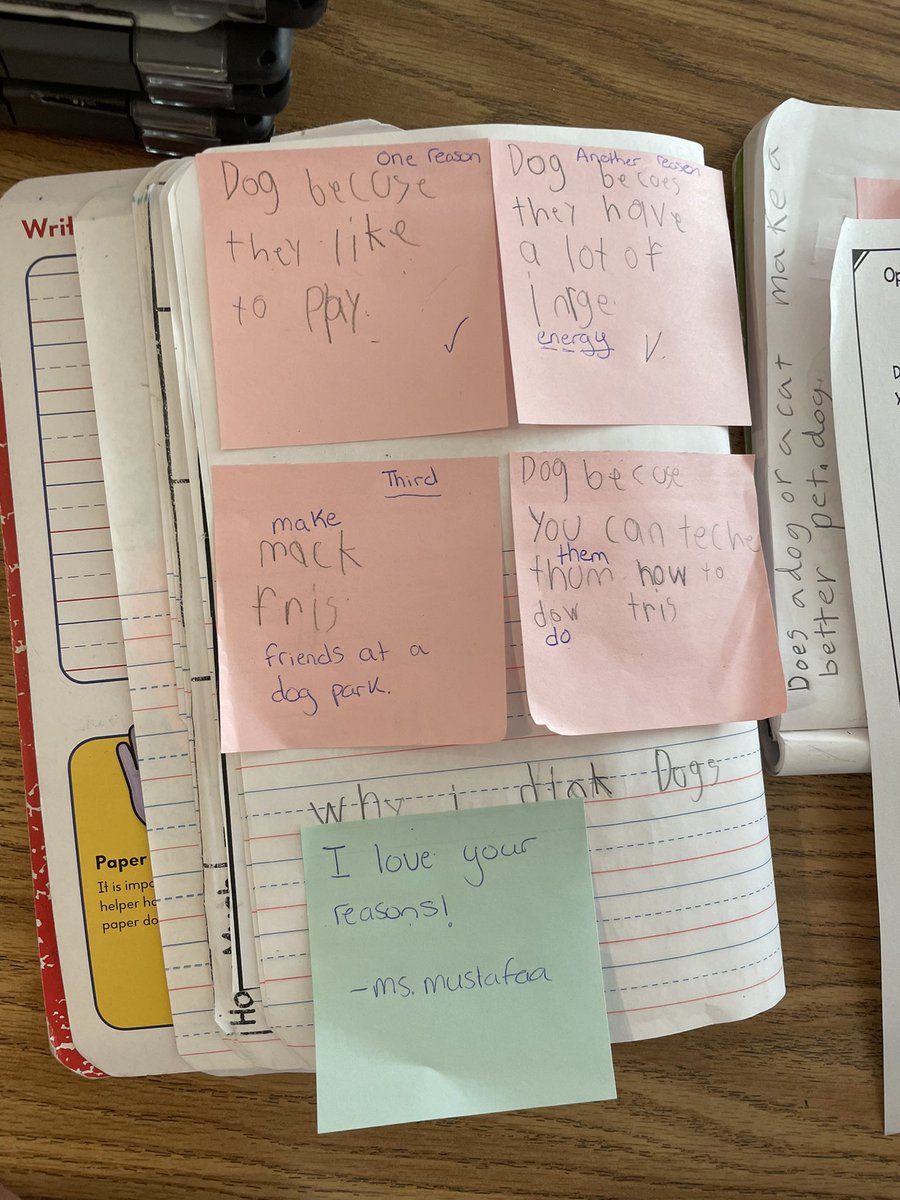 Writ
One reason
Dog becuse
they like
to play.
✓
Another reason
Dog becaes
they have
a lot of
inrge.
energy
✓
Third
make
mack
fris
friends at a
dog park.
Dog becuse
You can teche
them
thum how to
dow tris
do
Why i Dogs
I love your
reasons!
-ms. mustafaa
Paper
It is impo
helper ha
paper do
Ho
Does a dog or a cat make a
better pet. dog.
Op
D
y